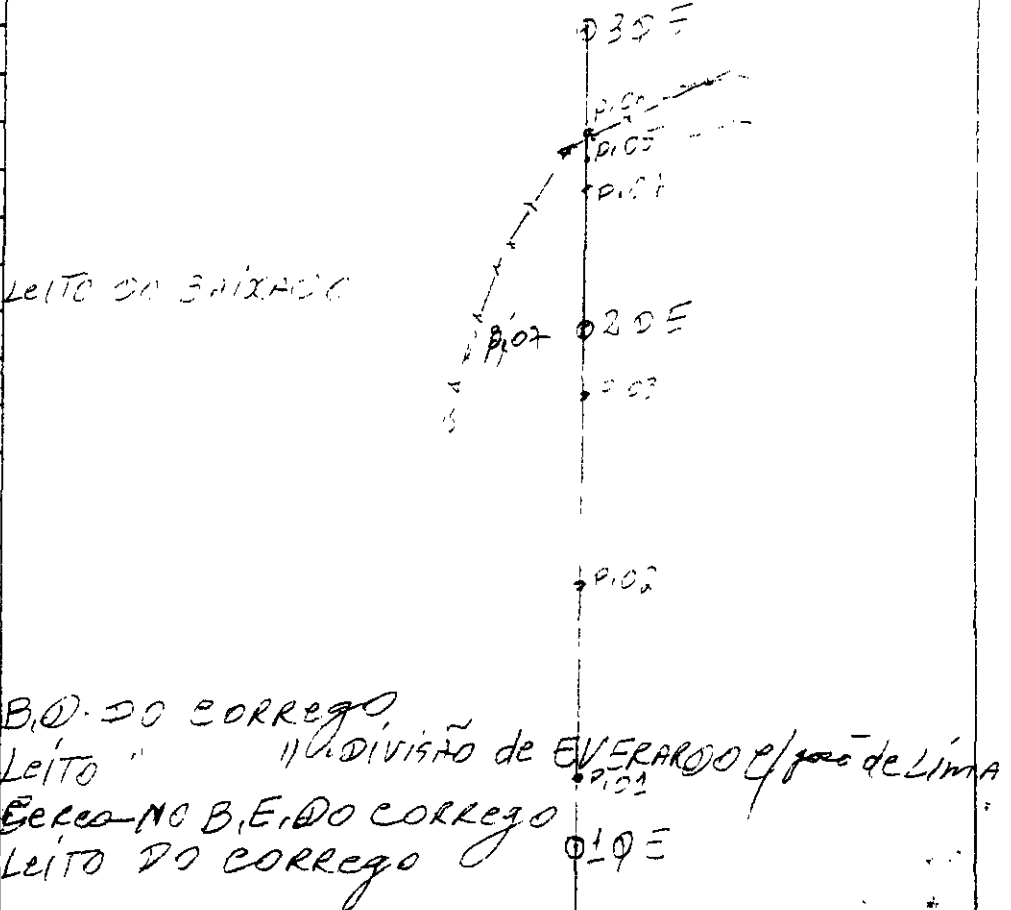 3DE
P.05
P.04
LEITO DO BAIXADO
P.07
2DE
P.03
P.02
B.D. DO CORREGO
LEITO " " DIVISÃO de EVERARDO c/ joão de Lima
P.01
CERCA NO B.E. DO CORREGO
LEITO DO CORREGO
1DE